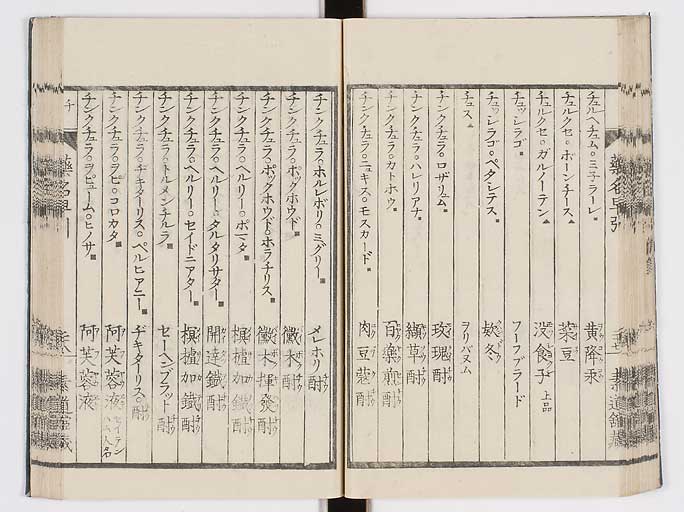 チュルヘチュム。ミ子ラーレ。 黄降汞
チュルクセ。ホーンチース▲ 菜豆
チュルクセ。ガルノーテン▲ 没食子 上品
チュッシラゴ。 フーフブラード
チュッシラゴ。ペタシテス 欵冬
チュス▲ ヲリバヌム
チンクチュラ。ロザリュム 玫瑰酎
チンクチュラ。ハレリアナ 纈草酎
チンクチュラ。カトホウ 百藥煎酎
チンクチュラ。ニュキス。モスカード 肉豆蔲酎
チンクチュラ。ホルレボリ。ミグリー メレホリ酎
チンクチュラ。ポックホウド 黴木酎
チンクチュラ。ポックホウド。ホラチリス 黴木揮發酎
チンクチュラ。ヘルリー。ポーマタ 榠樝加鐵酎
チンクチュラ。ヘルリー。タルタリサター 開達鐵酎
チンクチュラ。ヘルリー。セイドニアター 榠樝加鐵酎
チンクチュラ。トルメンチルラ セーヘンブラット酎
チンクチュラ。ヂキターリス。ペルヒアニー ヂキターリス。酎
チンクチュラ。ヲピ。コロカタ 阿芙蓉液
チンクチュラ。ヲピューム。ヒノサ 阿芙蓉液